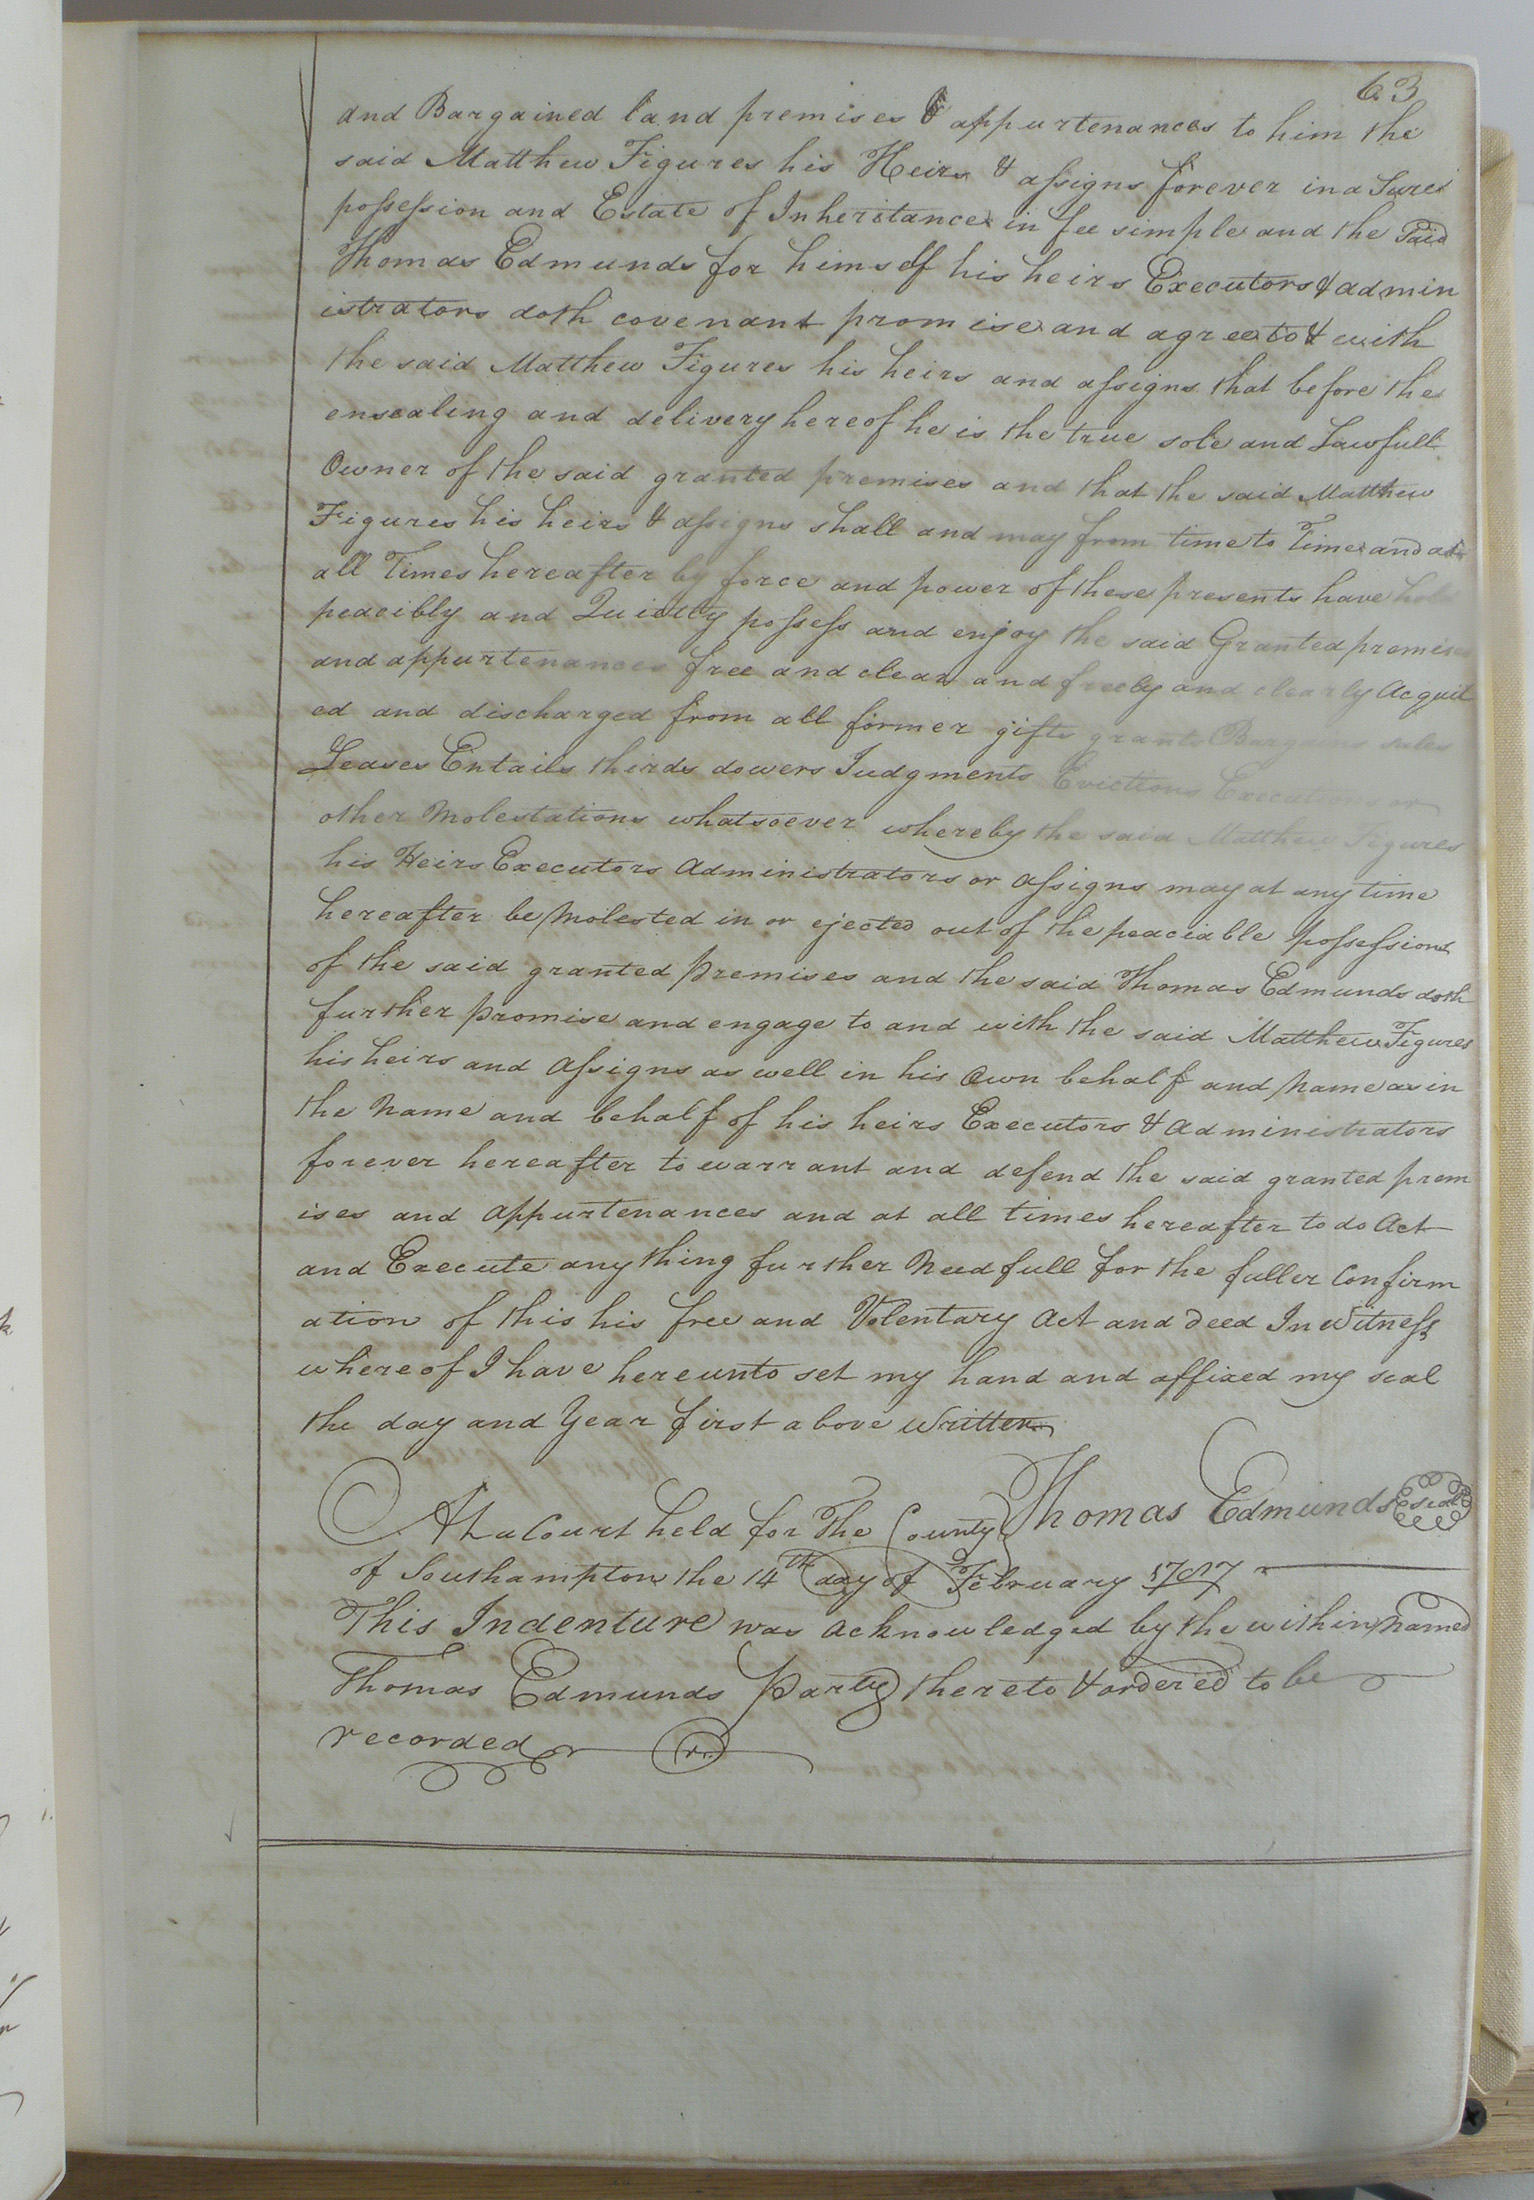 63
and Bargained land premises & appurtenances to him the
said Matthew Figures his Heirs & assigns forever in a Sure
possession and Estate of Inheritance in fee simple and the Said
Thomas Edmunds for himself his heirs Executors & admin
istrators doth covenant promise and agree to & with
the said Matthew Figures his heirs and assigns that before the
ensealing and delivery hereof he is the true sole and Lawfull
Owner of the said granted premises and that the said Matthew
Figures his heirs & assigns shall and may from time to Time and at
all Times hereafter by force and power of these presents have hold
peacibly and Quietly possess and enjoy the said Granted premises
and appurtenances free and clear and freely and clearly Acquit
ed and discharged from all former gifts grants Bargains sales
Leases Entails thirds dowers Judgments Evictions Executions or
other Molestations whatsoever whereby the said Matthew Figures
his Heirs Executors Administrators or Assigns may at any time
hereafter be Molested in or ejected out of the peaciable possession
of the said granted premises and the said Thomas Edmunds doth
further promise and engage to and with the said Matthew Figures
his heirs and Assigns as well in his Own behalf and Name as in
the Name and behalf of his heirs Executors & Administrators
forever hereafter to warrant and defend the said granted prem
ises and Appurtenances and at all times hereafter to do Act
and Execute any thing further Needfull for the fuller Confirm
ation of this his free and Volentary Act and deed In Witness
whereof I have hereunto set my hand and affixed my seal
the day and Year first above Written
Thomas Edmunds seal
At a Court held for The County
of Southampton the 14th day of February 1787
This Indenture was Acknowledged by the within Named
Thomas Edmunds Party thereto & ordered to be
recorded